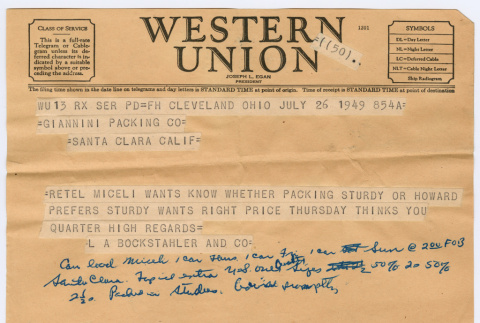 CLASS OF SERVICE
This is a full-rate
Telegram or Cable-
gram unless its de-
ferred character is in-
dicated by a suitable
symbol above or pre-
ceding the address.
WESTERN
UNION
JOSEPH L. EGAN
PRESIDENT
1201
=((50)..
SYMBOLS
DL=Day Letter
NL=Night Letter
LC=Deferred Cable
NLT=Cable Night Letter
Ship Radiogram
The filing time shown in the date line on telegrams and day letters is STANDARD TIME at point of origin. Time of receipt is STANDARD TIME at point of destination
WU13 RX SER PD=FH CLEVELAND OHIO JULY 26 1949 854A=
=GIANNINI PACKING CO=
=SANTA CLARA CALIF=
=RETEL MICELI WANTS KNOW WHETHER PACKING STURDY OR HOWARD
PREFERS STURDY WANTS RIGHT PRICE THURSDAY THINKS YOU
QUARTER HIGH REGARDS=
=L A BOCKSTAHLER AND CO=
Can load 1 car 1 car 1 car @ 2 FOB
Santa Clara. extra sizes 50% 20 50%
2½. Packed in promptly